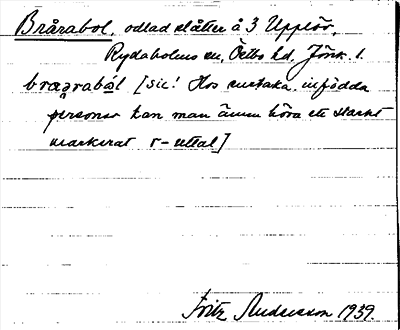 Brårabol, odlad slätter å 3 Upplöv,
Rydaholms sn, Östbo hd. Jönk. l.
brarabol [sic! Hos enstaka infödda
personer kan man ännu höra ett starkt
markerat r-uttal]
Fritz Andersson 1939.